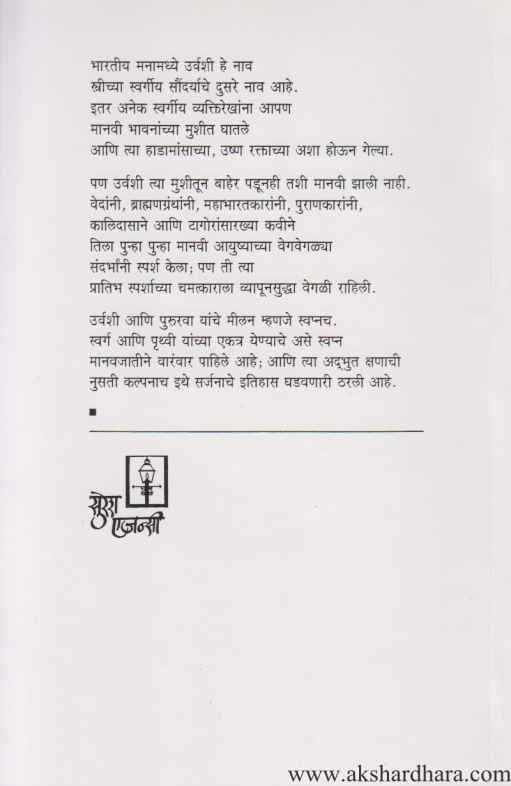 भारतीय मनामध्ये उर्वशी हे नाव
स्त्रीच्या स्वर्गीय सौंदर्याचे दुसरे नाव आहे.
इतर अनेक स्वर्गीय व्यक्तिरेखांना आपण
मानवी भावनांच्या मुशीत घातले
आणि त्या हाडामांसाच्या, उष्ण रक्ताच्या अशा होऊन गेल्या.
पण उर्वशी त्या मुशीतून बाहेर पडूनही तशी मानवी झाली नाही.
वेदांनी, ब्राह्मणग्रंथांनी, महाभारतकारांनी, पुराणकारांनी,
कालिदासाने आणि टागोरांसारख्या कवीने
तिला पुन्हा पुन्हा मानवी आयुष्याच्या वेगवेगळ्या
संदर्भांनी स्पर्श केला; पण ती त्या
प्रातिभ स्पर्शाच्या चमत्काराला व्यापूनसुद्धा वेगळी राहिली.
उर्वशी आणि पुरुरवा यांचे मीलन म्हणजे स्वप्नच.
स्वर्ग आणि पृथ्वी यांच्या एकत्र येण्याचे असे स्वप्न
मानवजातीने वारंवार पाहिले आहे; आणि त्या अद्‌भुत क्षणाची
नुसती कल्पनाच इथे सर्जनाचे इतिहास घडवणारी ठरली आहे.
सुरेश
एजन्सी
www.akshardhara.com